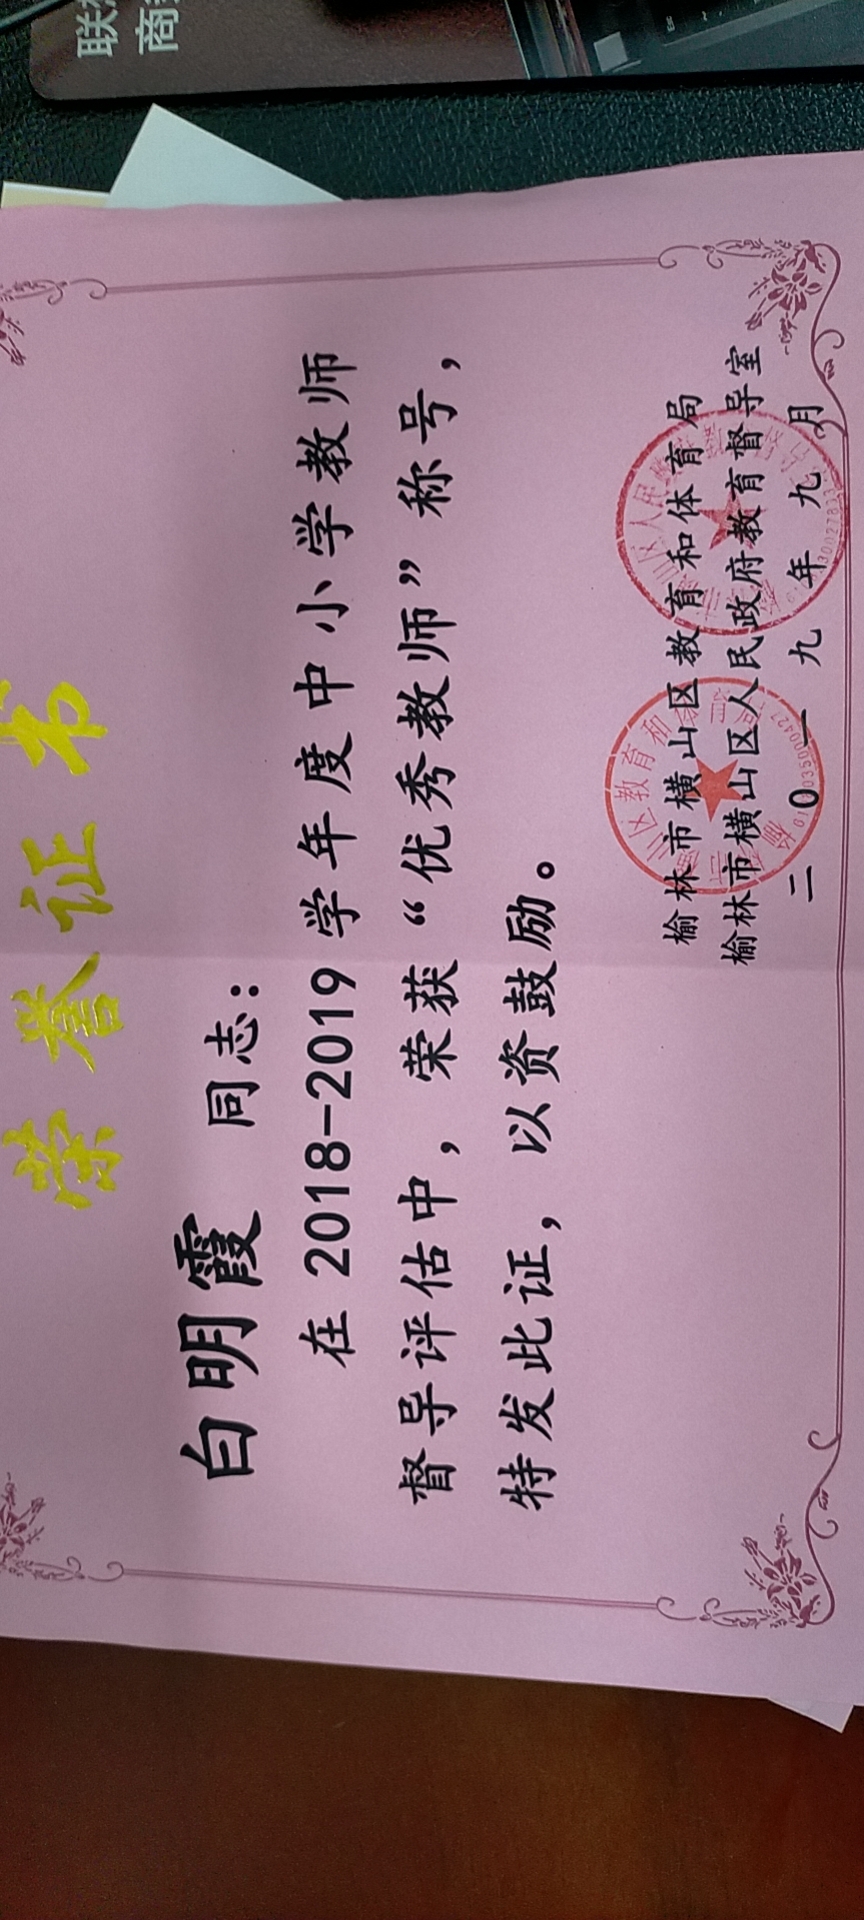 荣誉证书
白明霞 同志：
在 2018-2019 学年度中小学教师
督导评估中，荣获“优秀教师”称号，
特发此证，以资鼓励。
榆林市横山区教育和体育局
榆林市横山区人民政府教育督导室
二0一九年九月
联
商